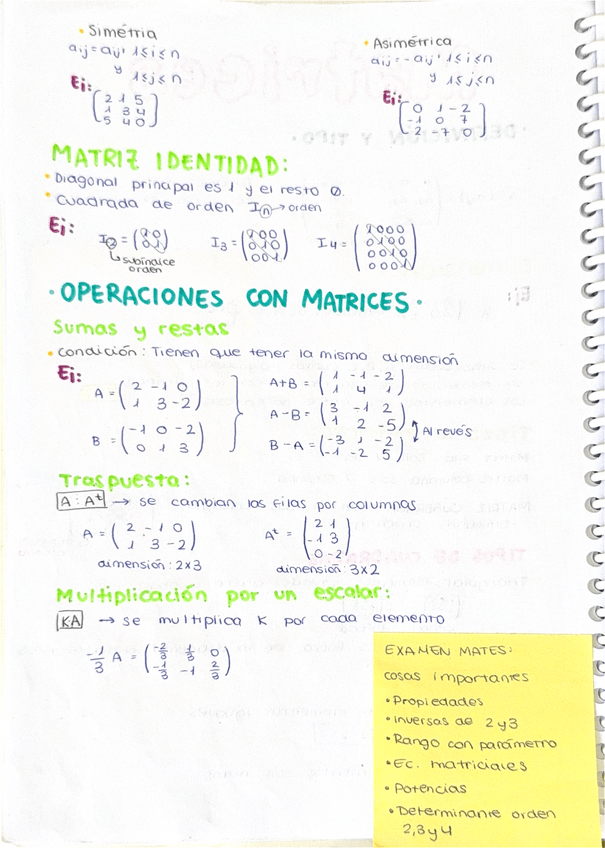 • Simétria
aij = aij, 1≤i≤n
y
1≤j≤n
Ej:
(2 1 5
1 3 4
5 4 0)
• Asimétrica
aij = -aij, 1≤i≤n
y 1≤j≤n
Ej:
(0 1 -2
-1 0 7
2 -7 0)
MATRIZ IDENTIDAD:
• Diagonal principal es 1 y el resto 0.
• Cuadrada de orden In → orden
Ej:
I2 = (1 0
0 1)
↳ subíndice
orden
I3 = (1 0 0
0 1 0
0 0 1)
I4 = (1 0 0 0
0 1 0 0
0 0 1 0
0 0 0 1)
· OPERACIONES CON MATRICES ·
Sumas y restas
• condición: Tienen que tener la misma dimensión
Ej:
A = (2 -1 0
1 3 -2)
B = (-1 0 -2
0 1 3)
A+B = (1 -1 -2
1 4 1)
A-B = (3 -1 2
1 2 -5)
B-A = (-3 1 -2
-1 -2 5)
Al revés
Traspuesta:
A: Aᵗ → se cambian las filas por columnas
A = (2 -1 0
1 3 -2)
dimensión: 2x3
Aᵗ = (2 1
-1 3
0 -2)
dimensión: 3x2
Multiplicación por un escalar:
KA → se multiplica K por cada elemento
-1/3 A = (-2/3 1/3 0
-1/3 -1 2/3)
EXAMEN MATES:
cosas importantes
• Propiedades
• inversas de 2 y 3
• Rango con parámetro
• Ec. matriciales
• Potencias
• Determinante orden
2,3 y 4